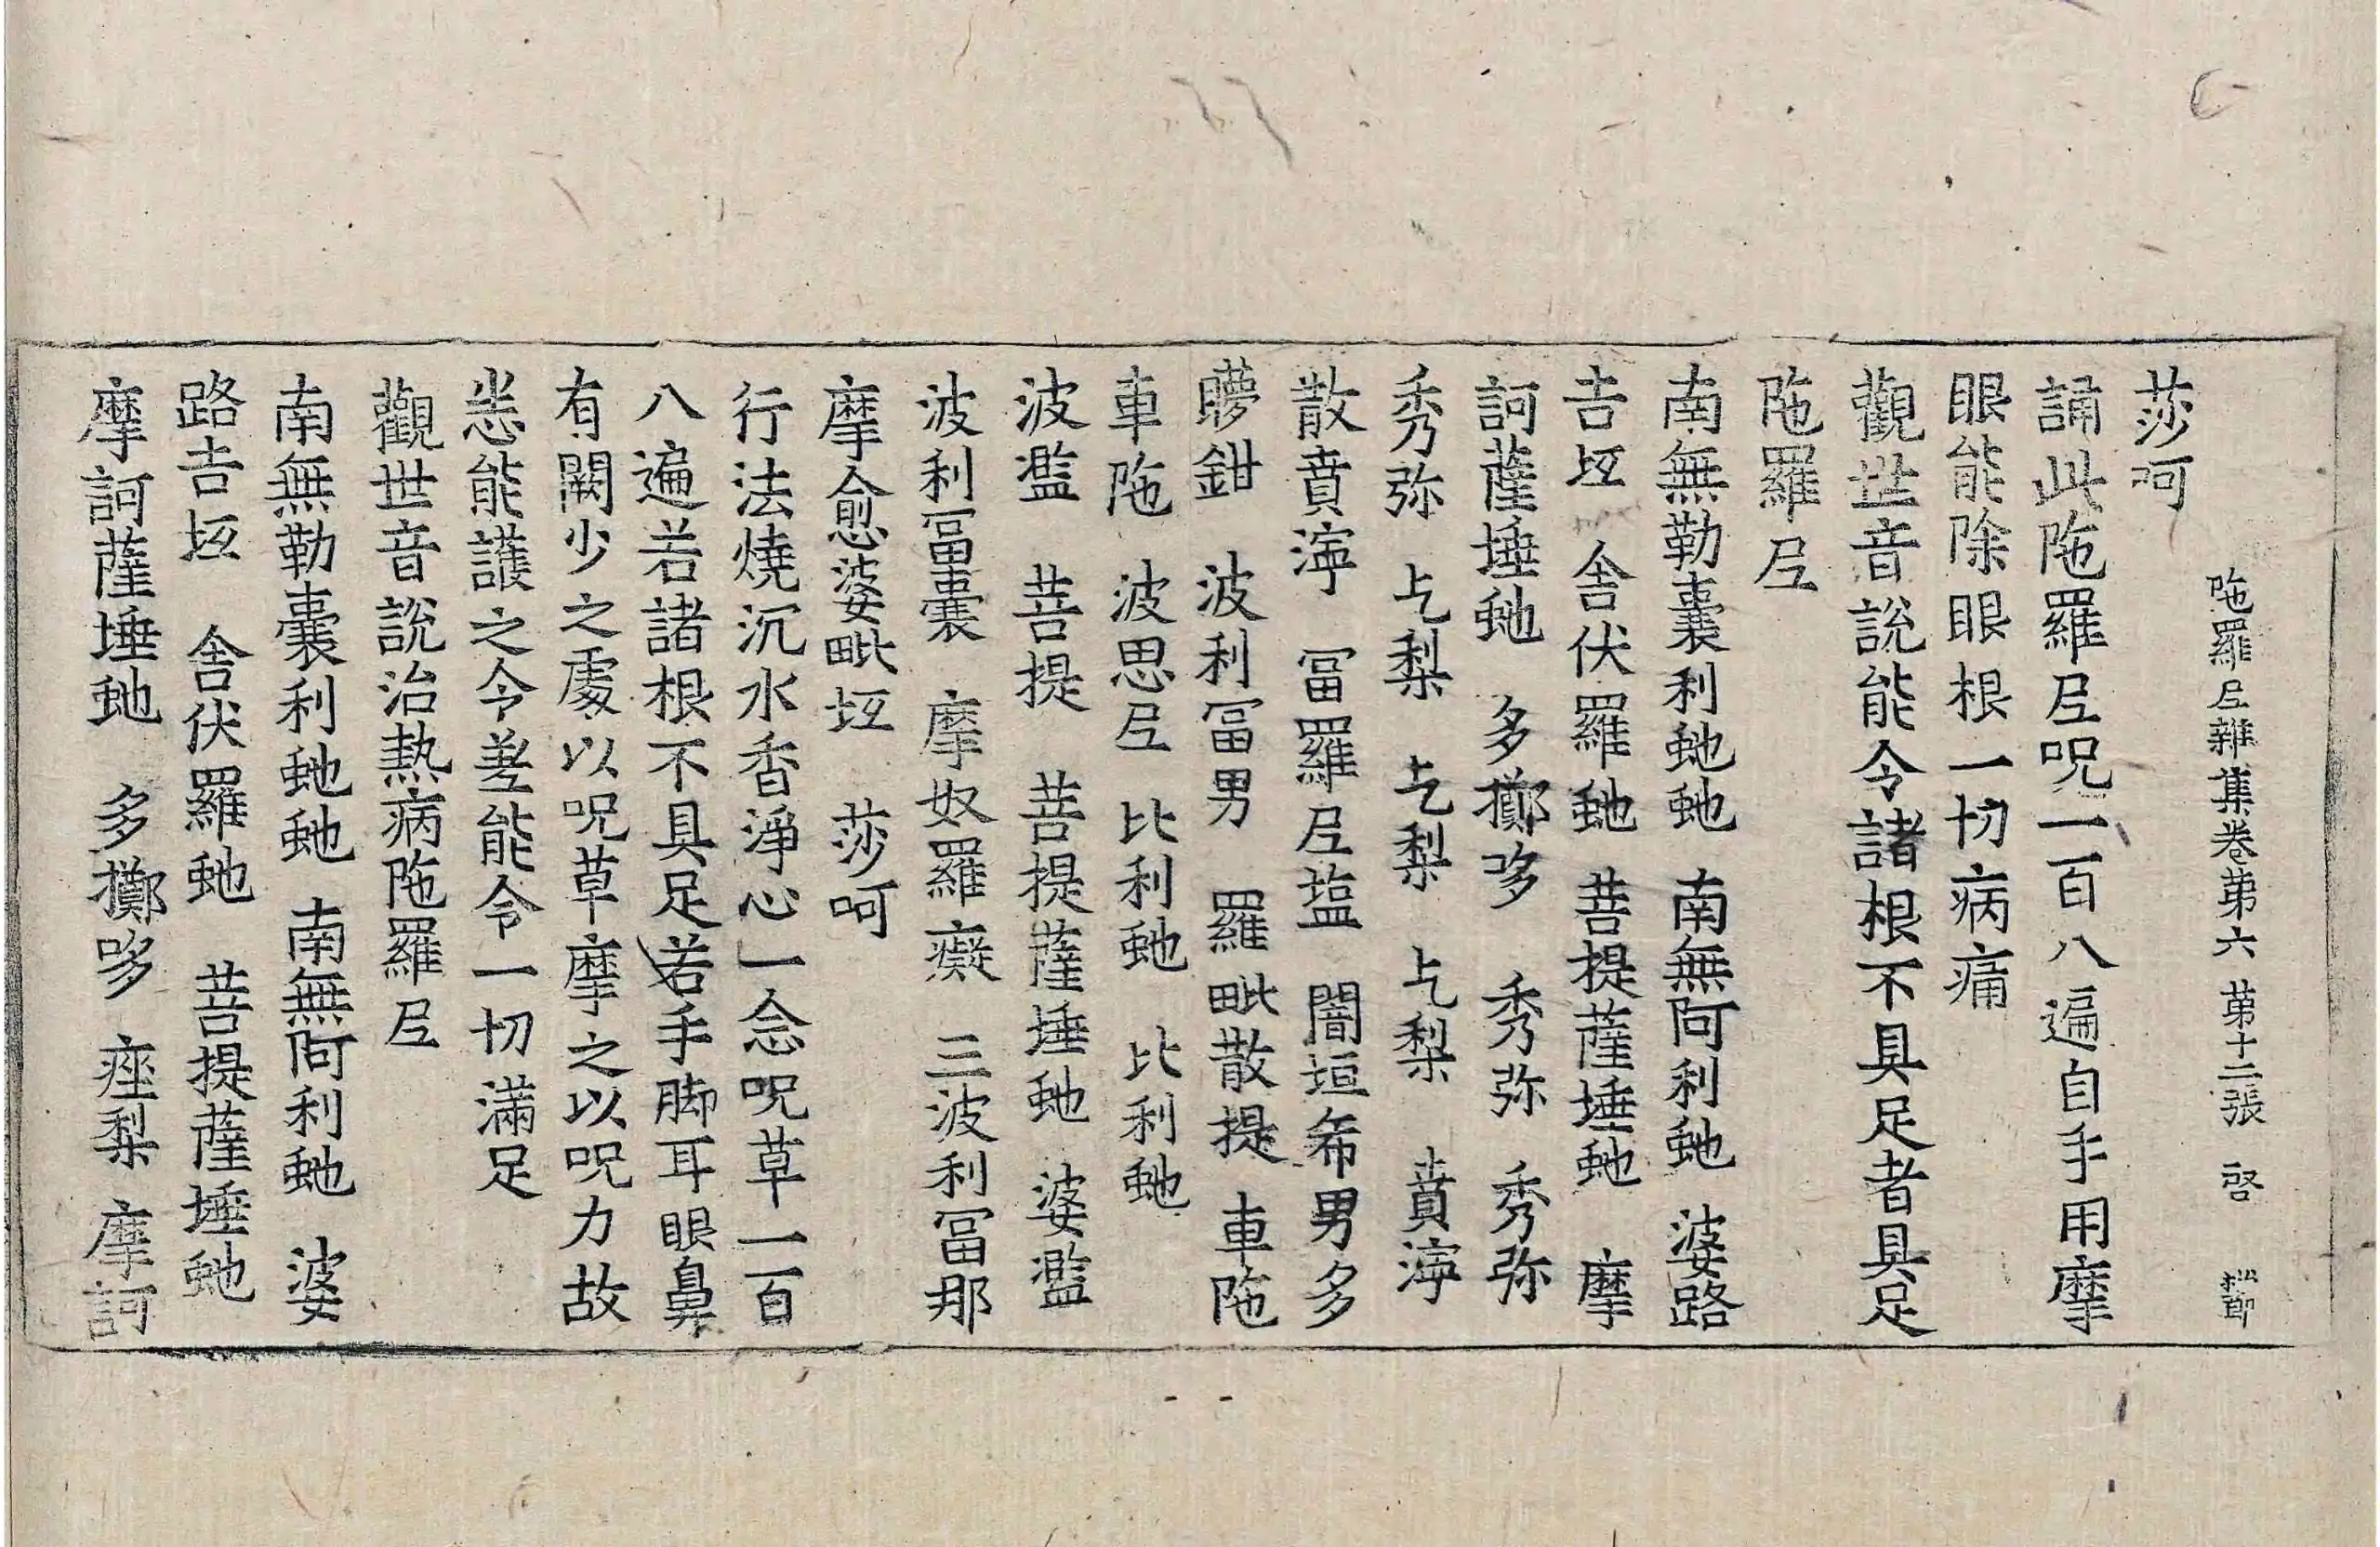 陁羅𡰱雜集卷第六　第十二張　啓
莎呵
誦此陁羅𡰱呪一百八遍自手用摩
眼能除眼根一切病痛
觀世音說能令諸根不具足者具足
陁羅𡰱
南無勒囊利虵虵　南無阿利虵　婆路
吉坘　舍伏羅虵　菩提薩埵虵　摩
訶薩埵虵　多擲哆　秀弥　秀弥
秀弥　𠧒梨　𠧒梨　𠧒梨　賁㵾
散賁㵾　冨羅𡰱塩　闍垣希男多
𥊍鉗　波利冨男　羅毗散提　車陁
車陁　波思𡰱　比利虵　比利虵
波濫　菩提　菩提薩埵虵　婆濫
波利冨囊　摩奴羅癡　三波利冨那
摩愈婆毗坘　莎呵
行法燒沉水香淨心一念呪草一百
八遍若諸根不具足若手脚耳眼鼻
有闕少之處以呪草摩之以呪力故
悉能護之令差能令一切滿足
觀世音說治熱病陁羅𡰱
南無勒囊利虵虵　南無阿利虵　婆
路吉坘　舍伏羅虵　菩提薩埵虵
摩訶薩埵虵　多擲哆　痤梨　摩訶